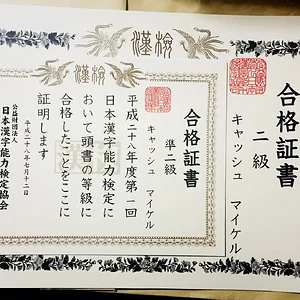 漢検
合格証書
二級
キャッシュ マイケル
漢検
合格証書
準二級
キャッシュ マイケル
平成二十八年度第一回
日本漢字能力検定に
おいて頭書の等級に
合格したことをここに
証明します
平成二十八年七月十二日
公益財団法人
日本漢字能力検定協会